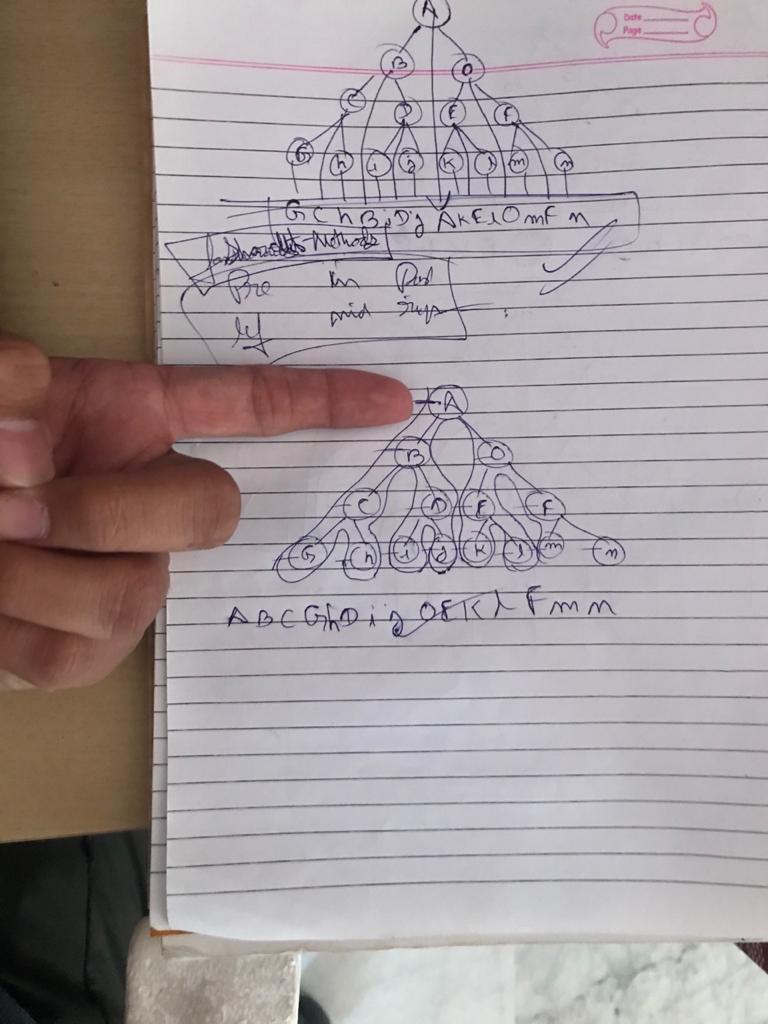 A
Date
Page
B O
C D E F
G h i j K l m n
G C h B i D j A K E l O m F n
Methods
Pre In Post
mid
A
B O
C D E F
G h i j K l m n
A B C G h D i j O E K l F m n